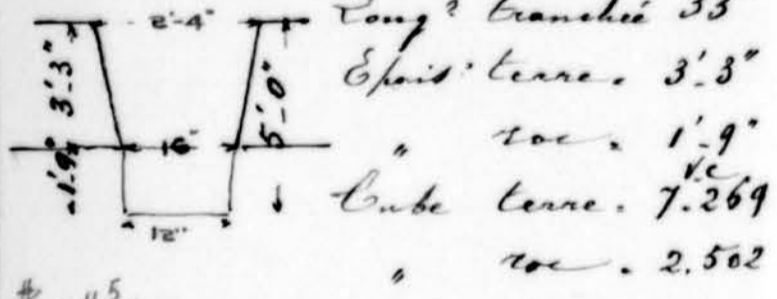 2'-4"
3'-3"
5'-0"
16"
1'-9"
12"
Longr tranchée 33'
Épaisr terre. 3'-3"
" roc. 1'-9"
v.c
Cube terre. 7.269
" roc. 2.502
# 5